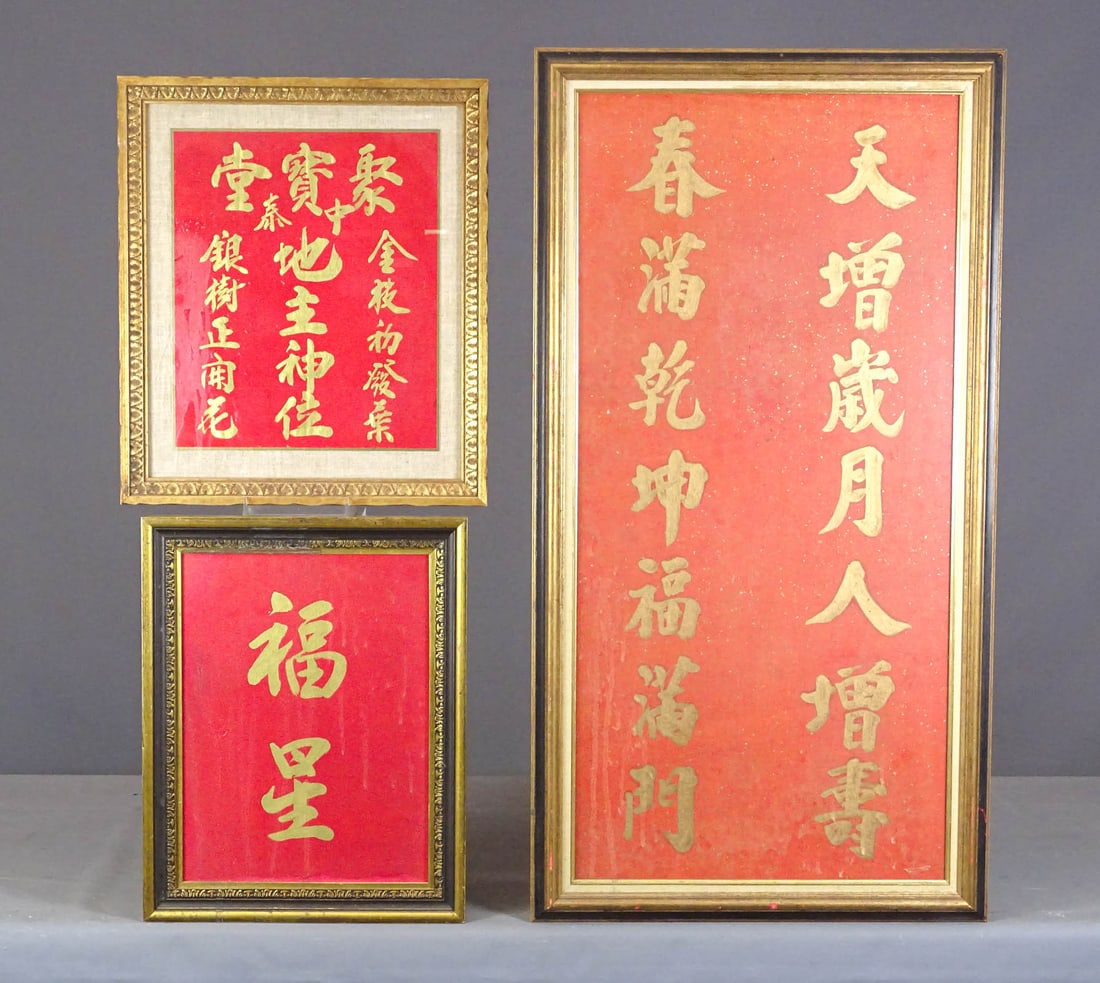 聚寶堂
中泰
金枝初發葉
地主神位
銀樹正開花
福星
天增歲月人增壽
春滿乾坤福滿門